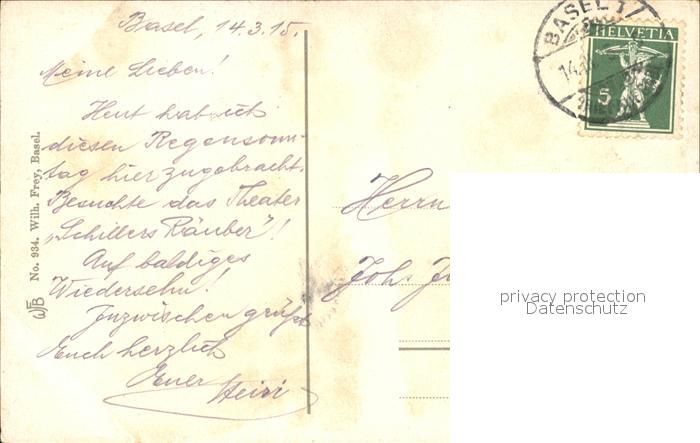 Basel, 14.3.15.
Meine Lieben!
Heut hab ich
diesen Regensonn-
tag hier zugebracht.
Besuchte das Theater
„Schillers Räuber"!
Auf baldiges
Wiedersehn!
Inzwischen grüßt
Euch herzlich
Euer Heiri
No. 934. Wilh. Frey, Basel.
WFB
BASEL 1
14.
HELVETIA
5
Herrn
Joh.
privacy protection
Datenschutz